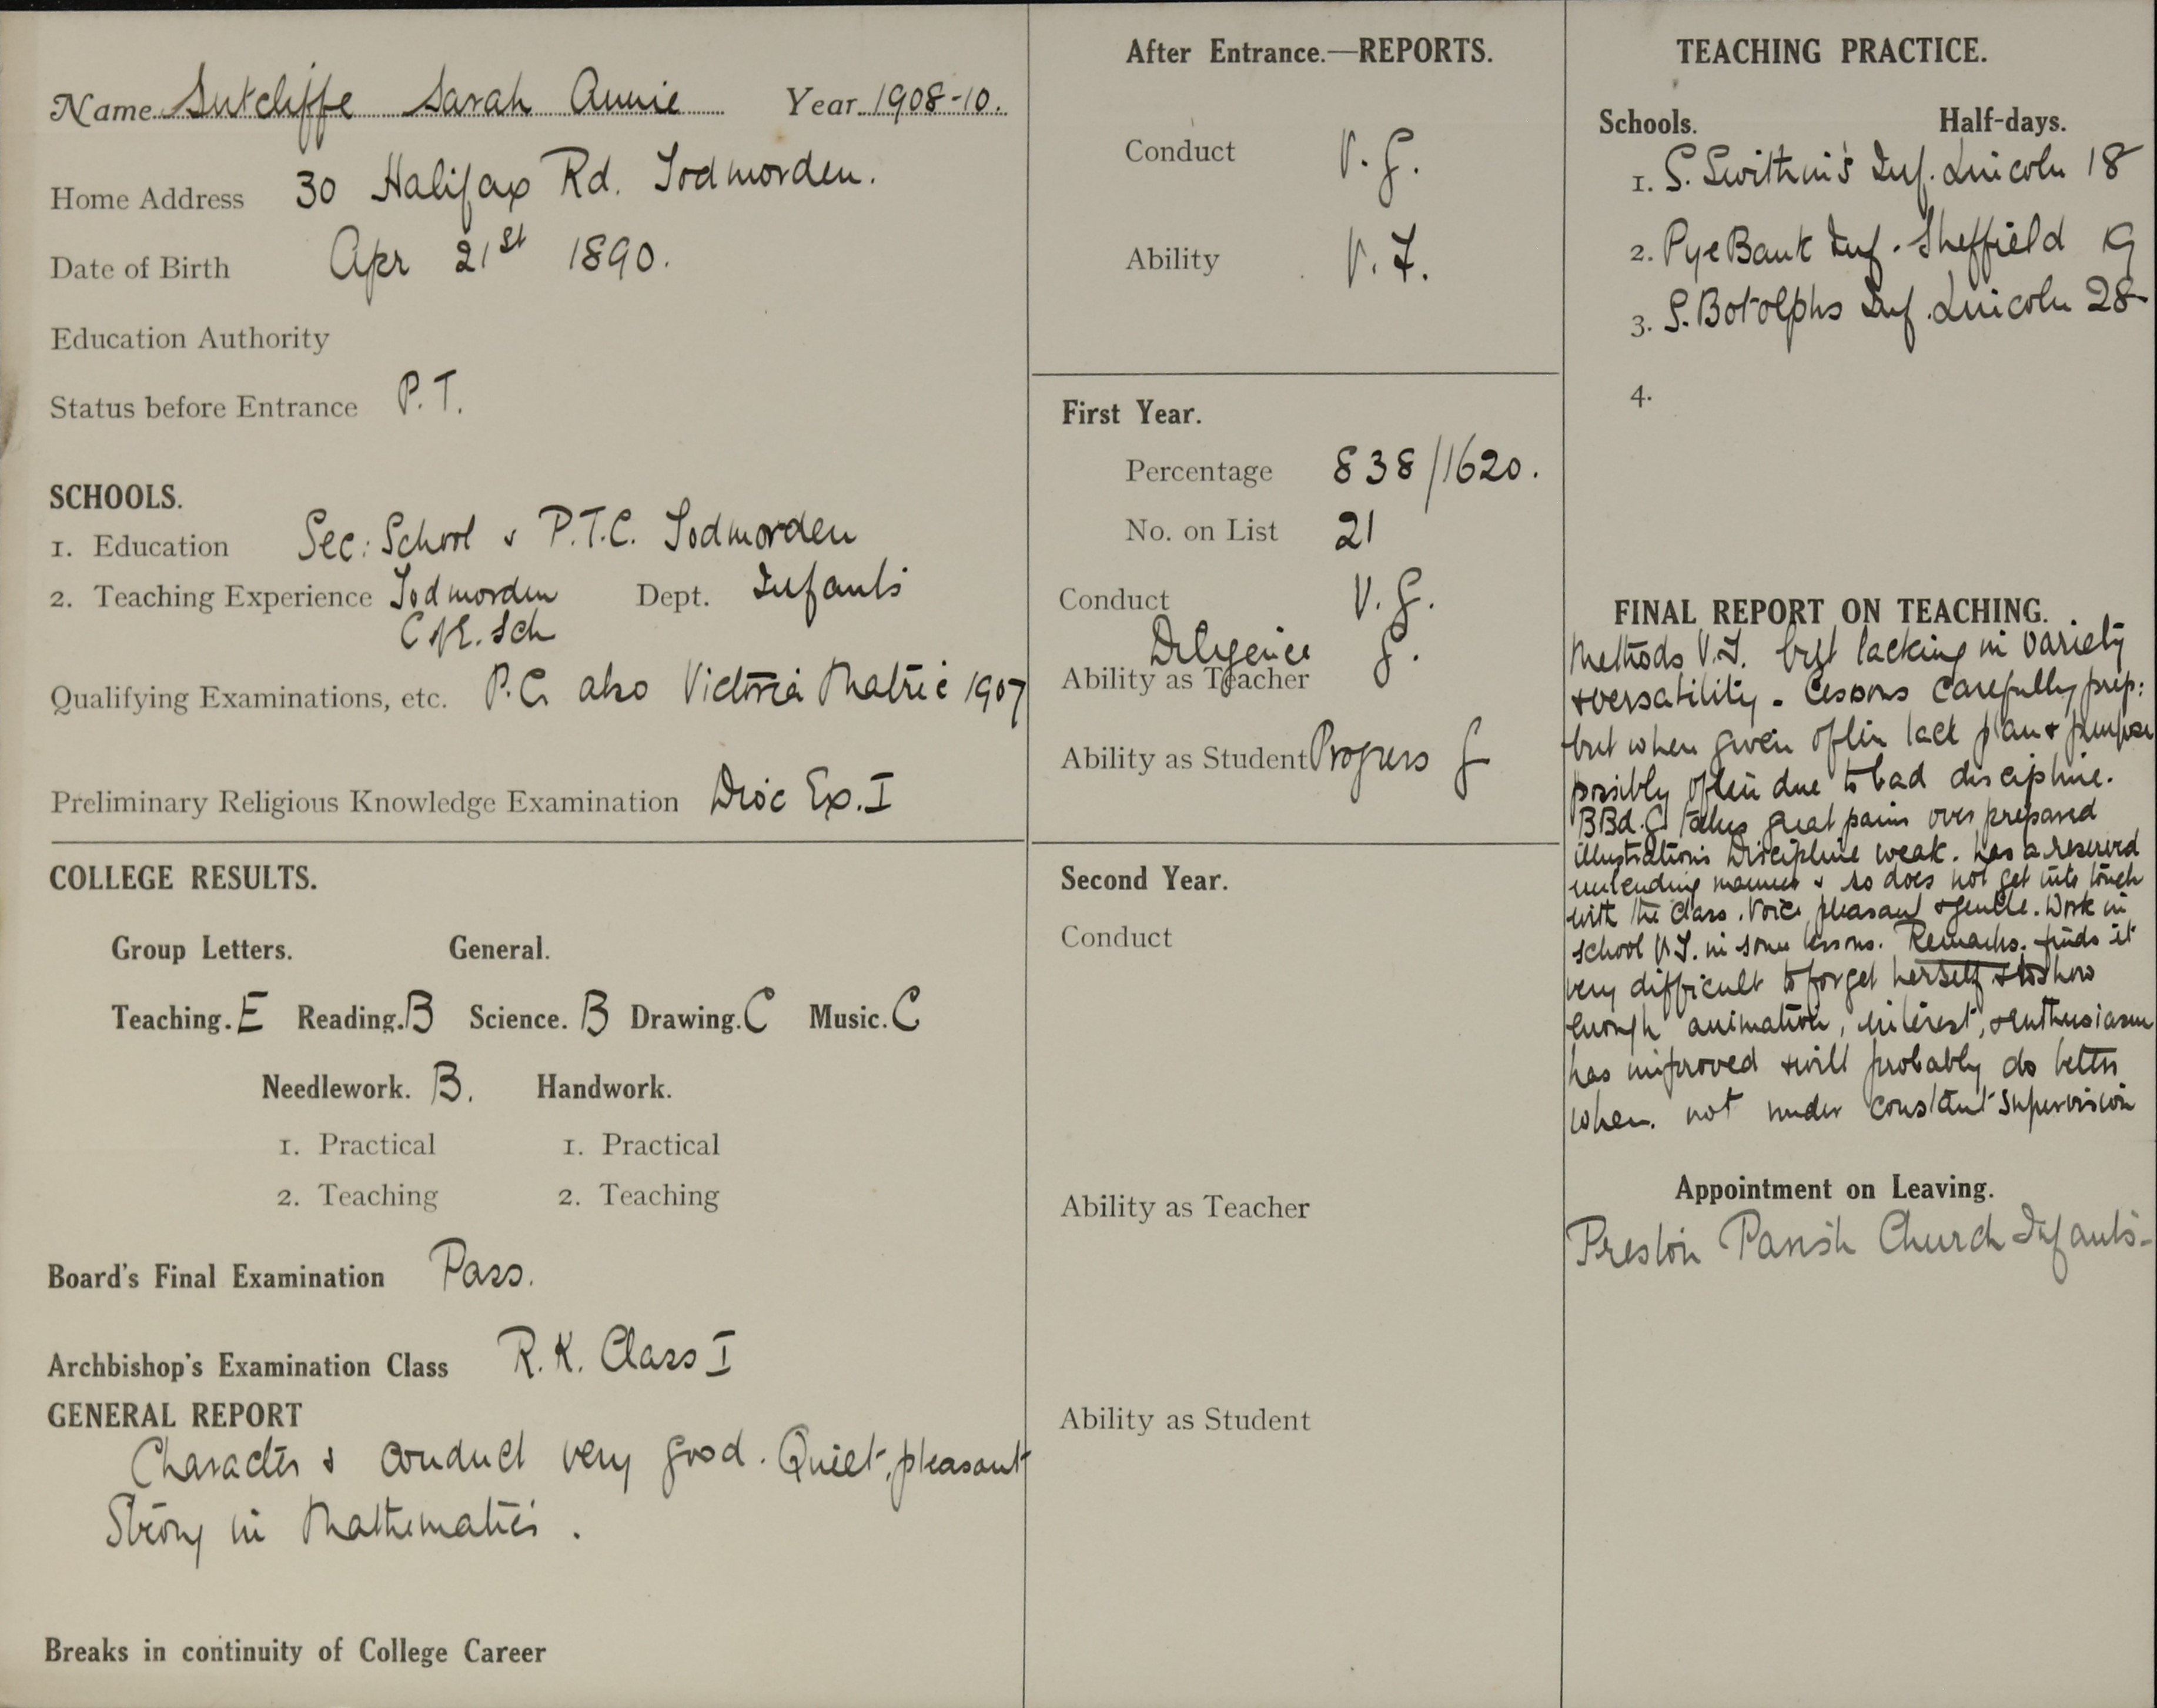 Name Sutcliffe Sarah Annie Year 1908-10.
Home Address 30 Halifax Rd. Todmorden.
Date of Birth Apr 21st 1890.
Education Authority
Status before Entrance P.T.
SCHOOLS.
1. Education Sec: School & P.T.C. Todmorden
2. Teaching Experience Todmorden Dept. Infants
C of E. Sch
Qualifying Examinations, etc. P.C. also Victoria Matric 1907
Preliminary Religious Knowledge Examination Dioc Ex. I
COLLEGE RESULTS.
Group Letters. General.
Teaching. E Reading. B Science. B Drawing. C Music. C
Needlework. B. Handwork.
1. Practical 1. Practical
2. Teaching 2. Teaching
Board's Final Examination Pass.
Archbishop's Examination Class R.K. Class I
GENERAL REPORT
Character & conduct very good. Quiet, pleasant
Strong in Mathematics.
Breaks in continuity of College Career
After Entrance.—REPORTS.
Conduct V.G.
Ability V.F.
First Year.
Percentage 838/1620.
No. on List 21
Conduct V.G.
Diligence G.
Ability as Teacher
Ability as Student Progress G
Second Year.
Conduct
Ability as Teacher
Ability as Student
TEACHING PRACTICE.
Schools. Half-days.
1. S. Swithin's Inf. Lincoln 18
2. Pye Bank Inf. Sheffield 19
3. S. Botolphs Inf. Lincoln 28
4.
FINAL REPORT ON TEACHING.
Methods V.F. but lacking in variety
& versatility - Lessons carefully prep:
but when given often lack plan & purpose
possibly often due to bad discipline.
BBd. G. takes great pains over prepared
illustrations Discipline weak. has a reserved
unbending manner & so does not get into touch
with the class. Voice pleasant & gentle. Work in
school V.F. in some lessons. Remarks. finds it
very difficult to forget herself & to show
enough animation, interest, & enthusiasm
has improved & will probably do better
when not under constant supervision
Appointment on Leaving.
Preston Parish Church Infants-